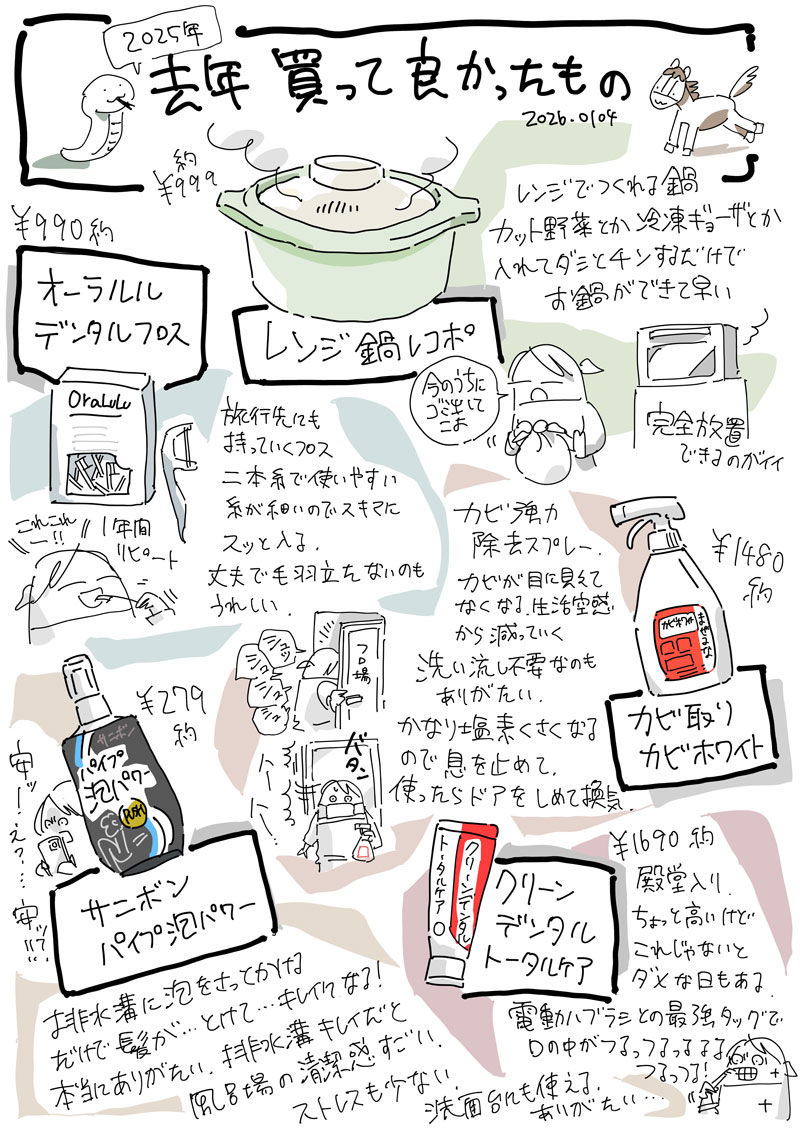 2025年
去年 買って良かったもの
2026.0104
約
¥999
レンジでつくれる鍋
カット野菜とか冷凍ギョーザとか
入れてダシとチンするだけで
お鍋ができて早い
レンジ鍋レコポ
今のうちに
ゴミ出して
こよ
完全放置
できるのがイイ
¥990約
オーラルル
デンタルフロス
Oralulu
これこれ
ー!!
1年間
リピート
旅行先にも
持っていくフロス
二本糸で使いやすい
糸が細いのでスキマに
スッと入る.
丈夫で毛羽立たないのも
うれしい.
カビ強力
除去スプレー.
カビが目に見えて
なくなる.生活空感
から減っていく
洗い流し不要なのも
ありがたい.
かなり塩素くさくなる
ので息を止めて.
使ったらドアをしめて換気.
¥1480
約
カビホワイト
まぜるな
カビ取り
カビホワイト
フロ場
バタン
¥279
約
サニボン
パイプ
泡パワー
安ッー.え?…
安ッて…
サニボン
パイプ泡パワー
排水溝に泡をさっとかける
だけで髪が…とけて…キレイになる!
本当にありがたい.排水溝キレイだと
風呂場の清潔感すごい.
ストレスも少ない.
クリーンデンタル
トータルケア
クリーン
デンタル
トータルケア
¥1690約
殿堂入り.
ちょっと高いけど
これじゃないと
ダメな日もある.
電動ハブラシとの最強タッグで
口の中がつるっつるっるるる
つるっつる!
洗面台にも使える.
ありがたい…